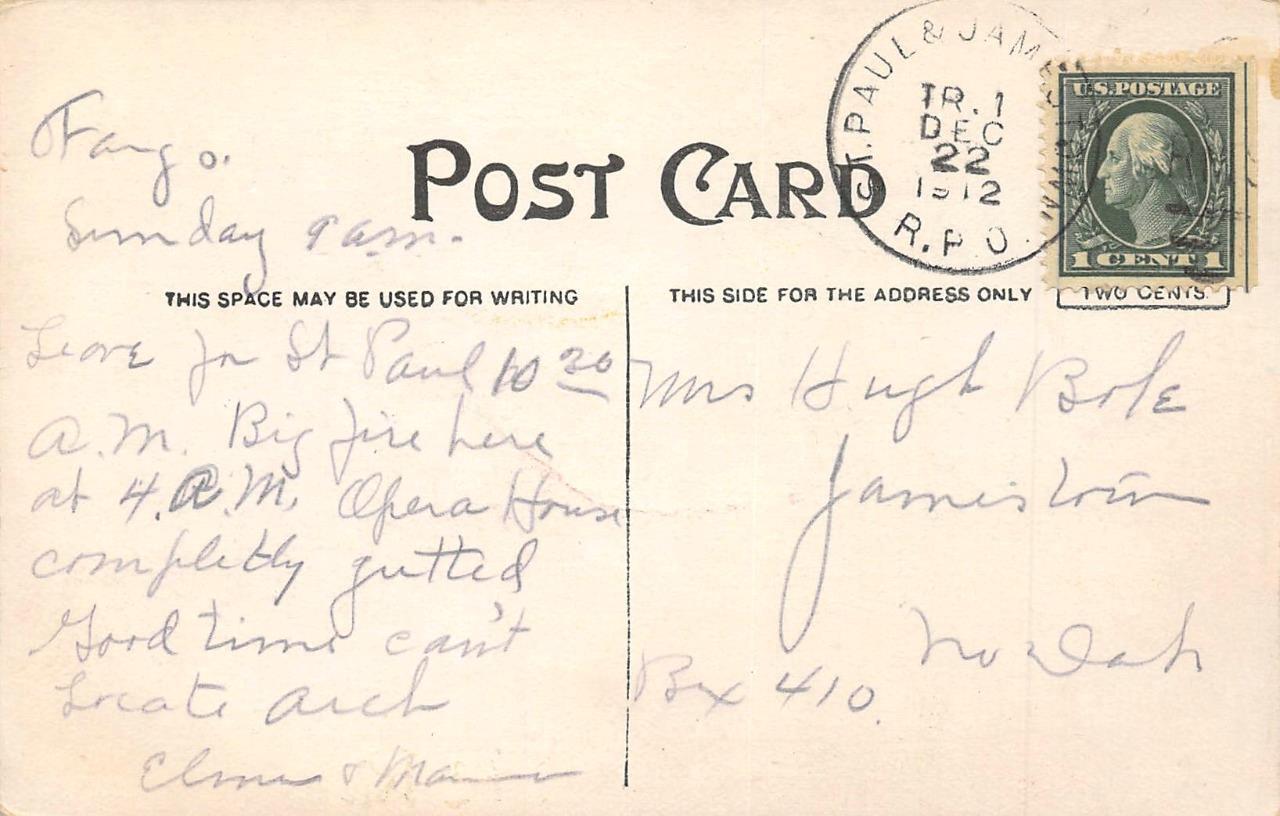 Fargo.
Sunday 9 am.
POST CARD
ST. PAUL & JAMESTOWN
TR. 1
DEC
22
1912
R.P.O.
U.S. POSTAGE
1 CENT 1
TWO CENTS.
THIS SPACE MAY BE USED FOR WRITING
THIS SIDE FOR THE ADDRESS ONLY
Leave for St Paul 10 30
A.M. Big fire here
at 4. A.M. Opera House
completly gutted
Good time can't
Locate Arch
Elmer &
Mrs Hugh Bole
Jamestown
No Dak
Box 410.